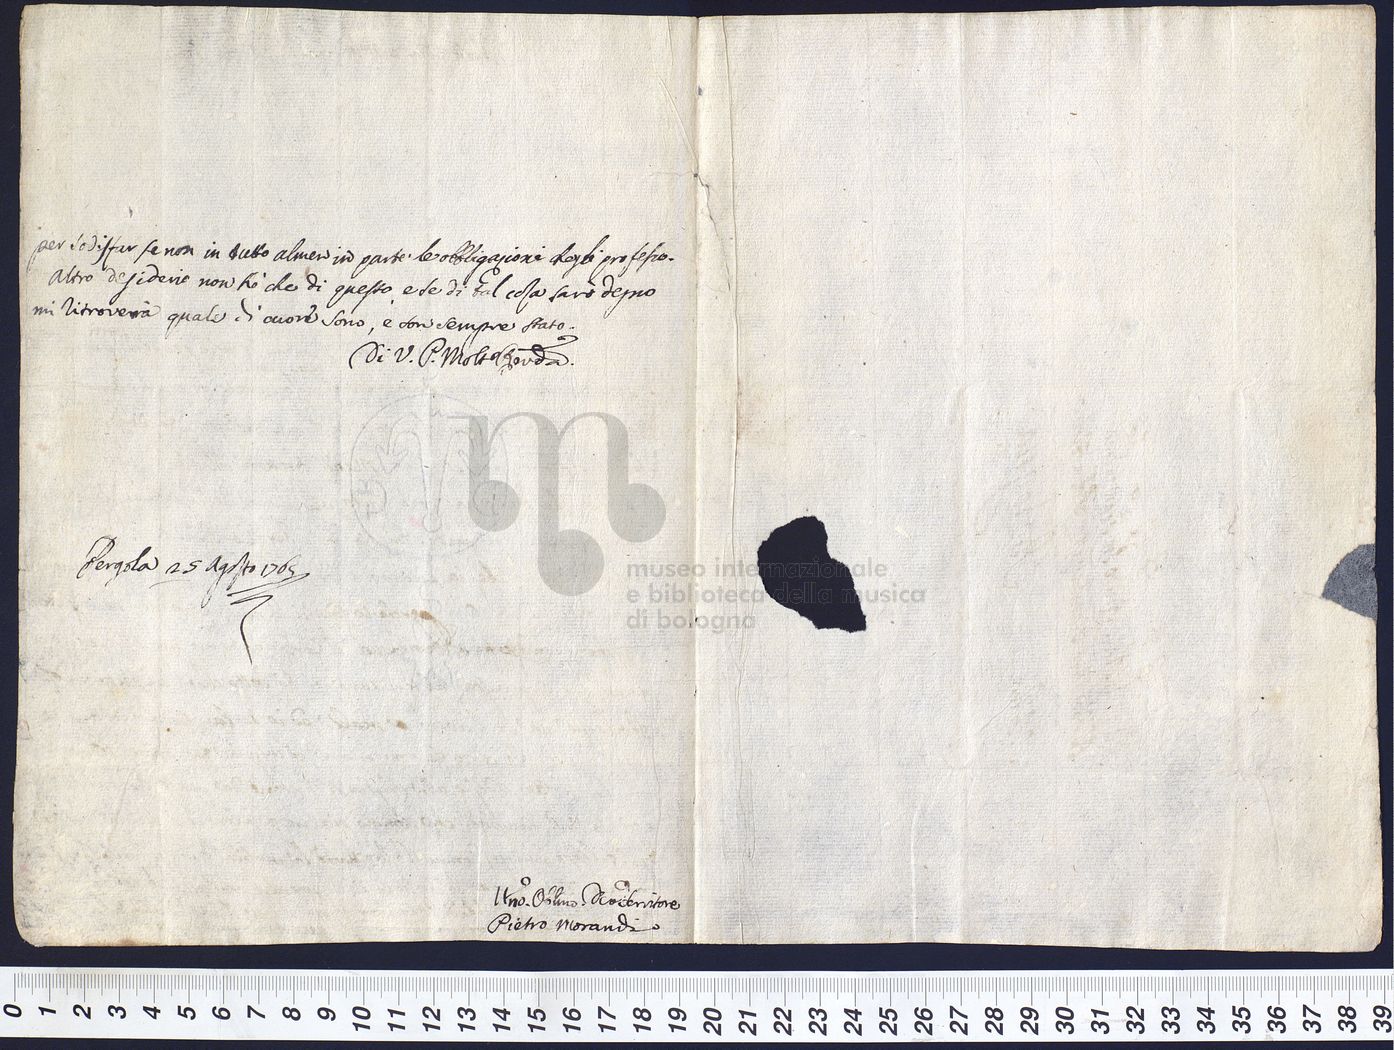 per sodisfar se non in tutto almen in parte le obbligazioni degli professo.
Altro desiderio non hò che di questo e se di tal cosa sarò degno
mi ritroverà quale di cuore sono, e son sempre stato.
Di V. P. Molto Rev.da
Pergola 25 Agosto 1765
Umo. Obbmo. Servitore
Pietro Morandi
museo internazionale
e biblioteca della musica
di bologna
0 1 2 3 4 5 6 7 8 9 10 11 12 13 14 15 16 17 18 19 20 21 22 23 24 25 26 27 28 29 30 31 32 33 34 35 36 37 38 39